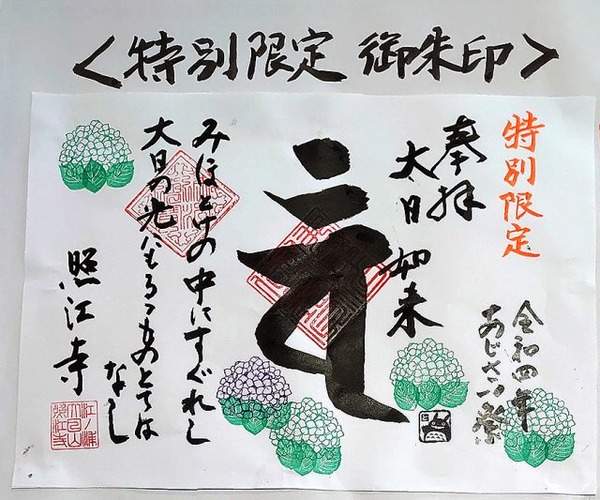 ＜特別限定 御朱印＞
特別限定
令和四年
あじさい祭
奉拝
大日如来
みほとけの中にすぐれし
大日の光にもるゝものとては
なし
照江寺